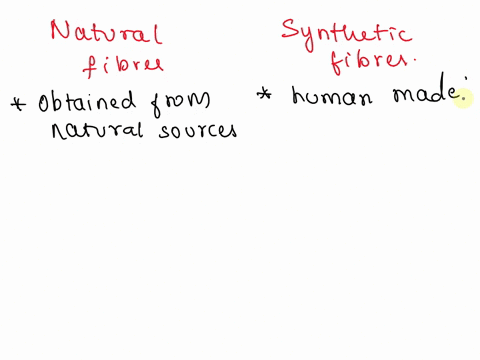 Natural
fibres
* Obtained from
natural sources
Synthetic
fibres.
* human made.